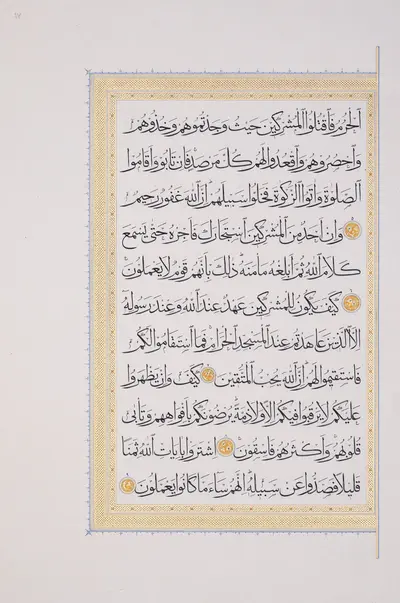 ٱلحرم فاقتلوا المشركين حيث وجدتموهم وخذوهم
واحصروهم واقعدوا لهم كل مرصد فان تابوا واقاموا
الصلوة واتوا الزكوة فخلوا سبيلهم ان الله غفور رحيم
وان احد من المشركين استجارك فاجره حتى يسمع
كلام الله ثم ابلغه مأمنه ذلك بأنهم قوم لا يعلمون
كيف يكون للمشركين عهد عند الله وعند رسوله
الا الذين عاهدتم عند المسجد الحرام فما استقاموا لكم
فاستقيموا لهم ان الله يحب المتقين كيف وان يظهروا
عليكم لا يرقبوا فيكم الا ولا ذمة يرضونكم بافواههم وتأبى
قلوبهم واكثرهم فاسقون اشتروا بايات الله ثمنا
قليلا فصدوا عن سبيله انهم ساء ما كانوا يعملون